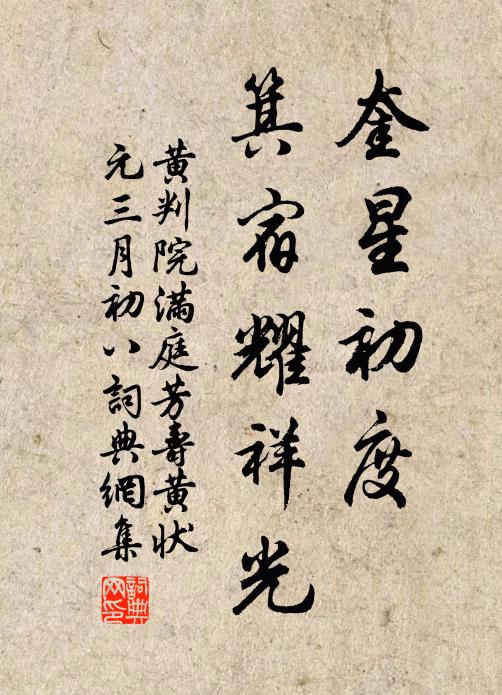 奎星初度
箕宿耀祥光
黄判院满庭芳壽黄状
元三月初八詞典網集
詞典
网印